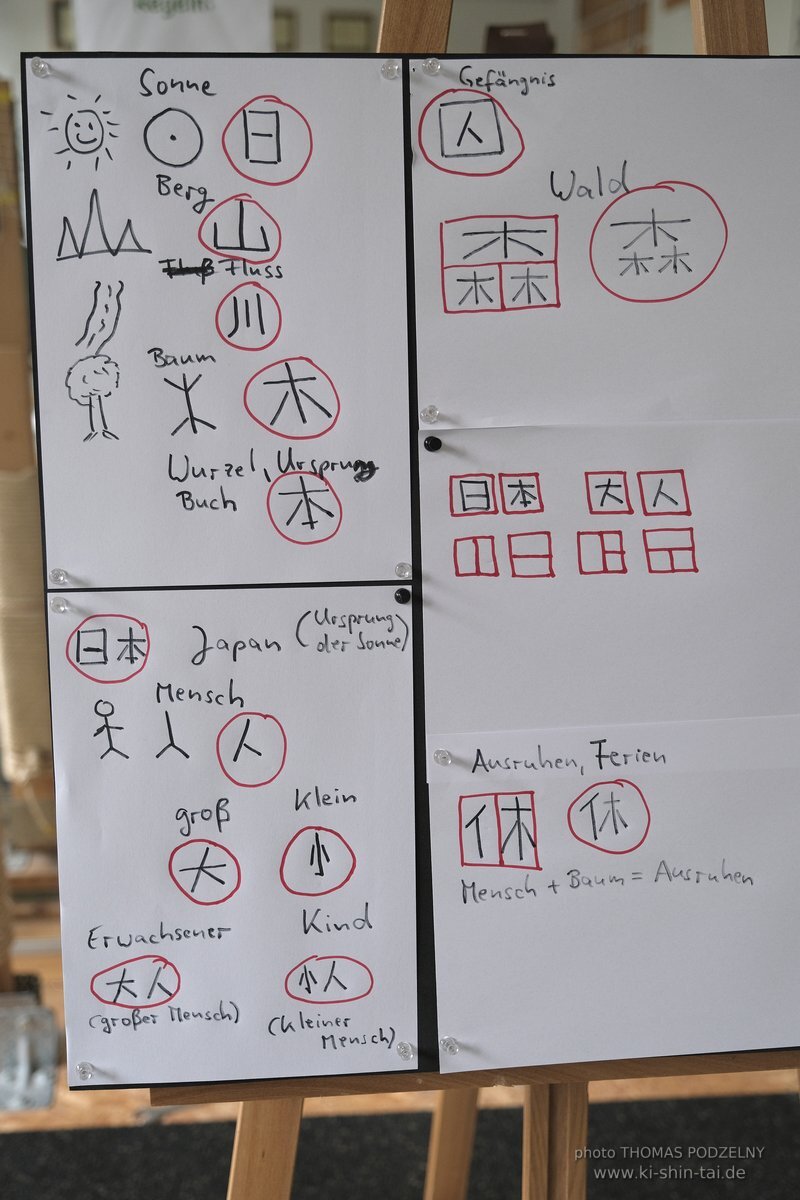 Regeln.
Sonne
日
Berg
山
Fluß Fluss
川
Baum
木
Wurzel, Ursprung
Buch
本
日本 Japan (Ursprung
der Sonne)
Mensch
人
groß Klein
大 小
Erwachsener Kind
大人 小人
(großer Mensch) (kleiner
Mensch)
Gefängnis
囚
Wald
森 森
日 本 大 人
Ausruhen, Ferien
休 休
Mensch + Baum = Ausruhen
photo THOMAS PODZELNY
www.ki-shin-tai.de